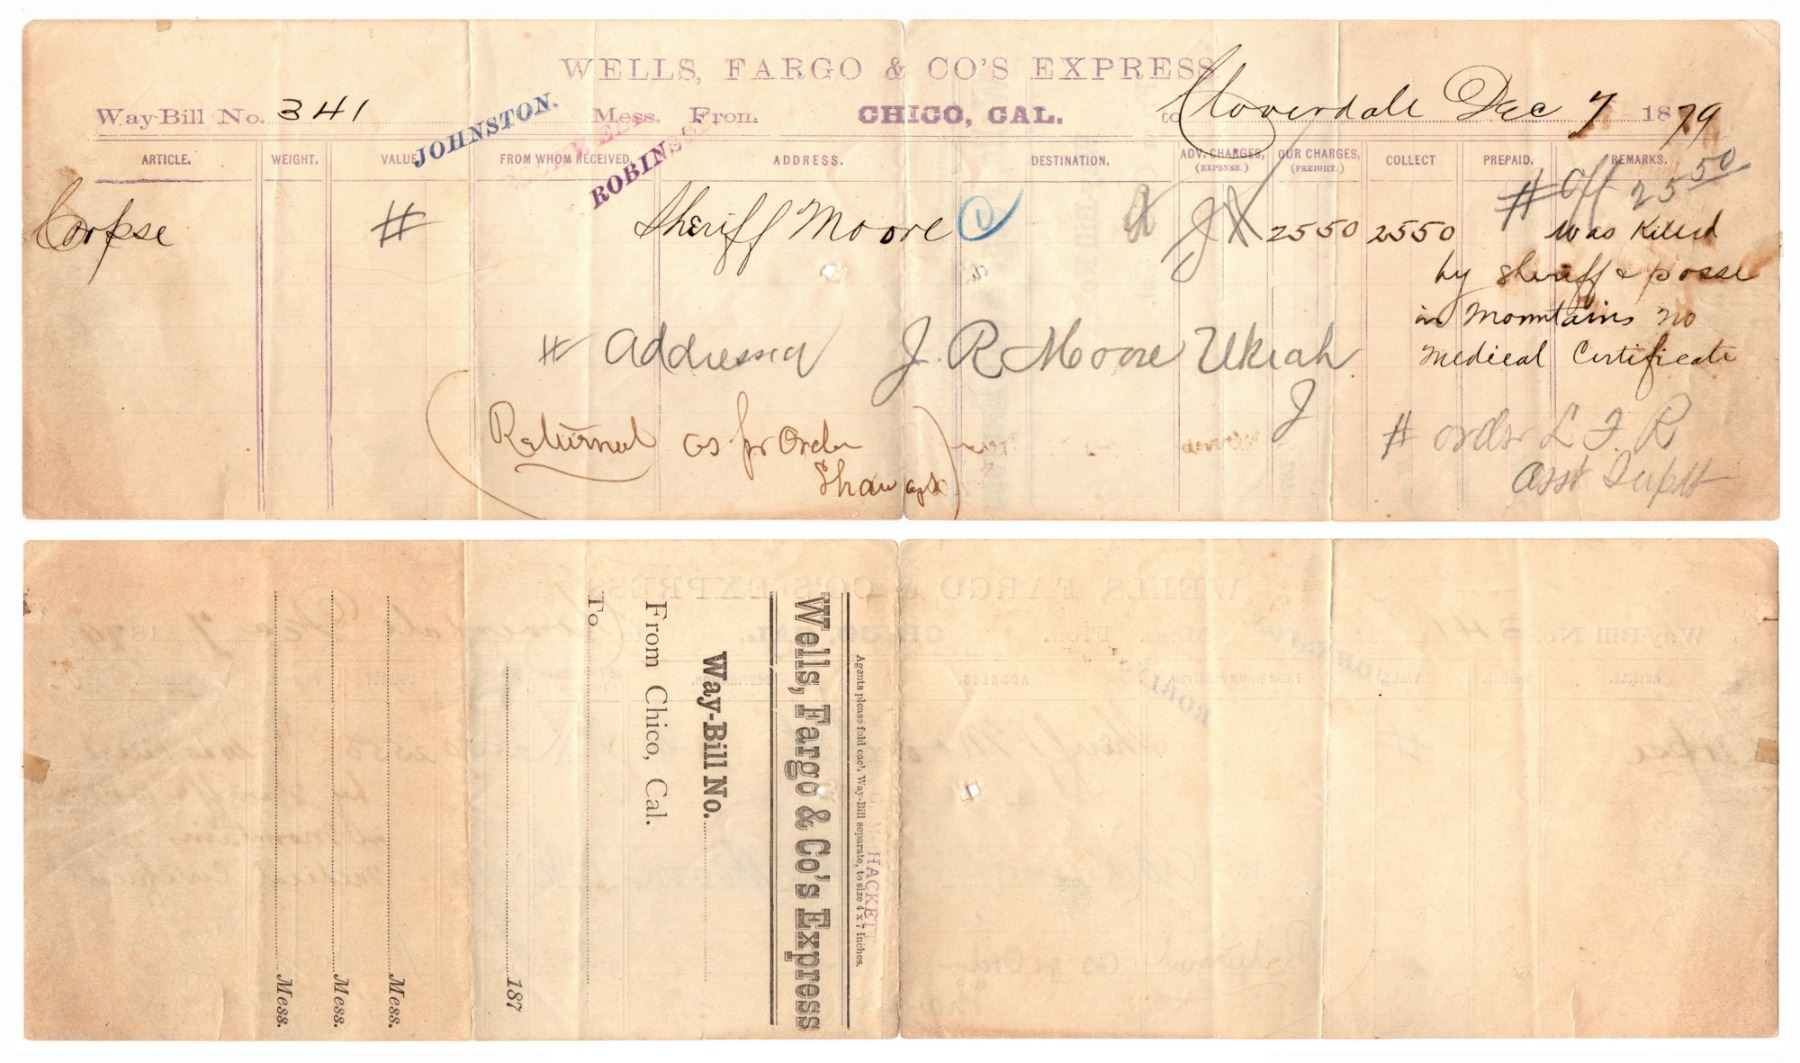 WELLS, FARGO & CO'S EXPRESS
Way-Bill No. 341 JOHNSTON. Mess. From CHICO, CAL. to Cloverdale Dec 7 1879
ROBINSON
ARTICLE. WEIGHT. VALUE FROM WHOM RECEIVED. ADDRESS. DESTINATION. ADV. CHARGES, (EXPENSE.) OUR CHARGES, (FREIGHT.) COLLECT PREPAID. REMARKS.
# Off 25 50
Corpse # Sheriff Moore 2550 2550 was Killed
by sheriff & posse
in Mountains no
Medical Certificate
# Addressed J. R Moore Ukiah
J
(Returned as pr Order
Shaw agt)
# order L F. R
Asst Supdt
Agents please fold each Way-Bill separate, to size 4 x 7 inches.
HACKETT
Wells, Fargo & Co's Express
Way-Bill No.
From Chico, Cal.
To
187
Mess.
Mess.
Mess.